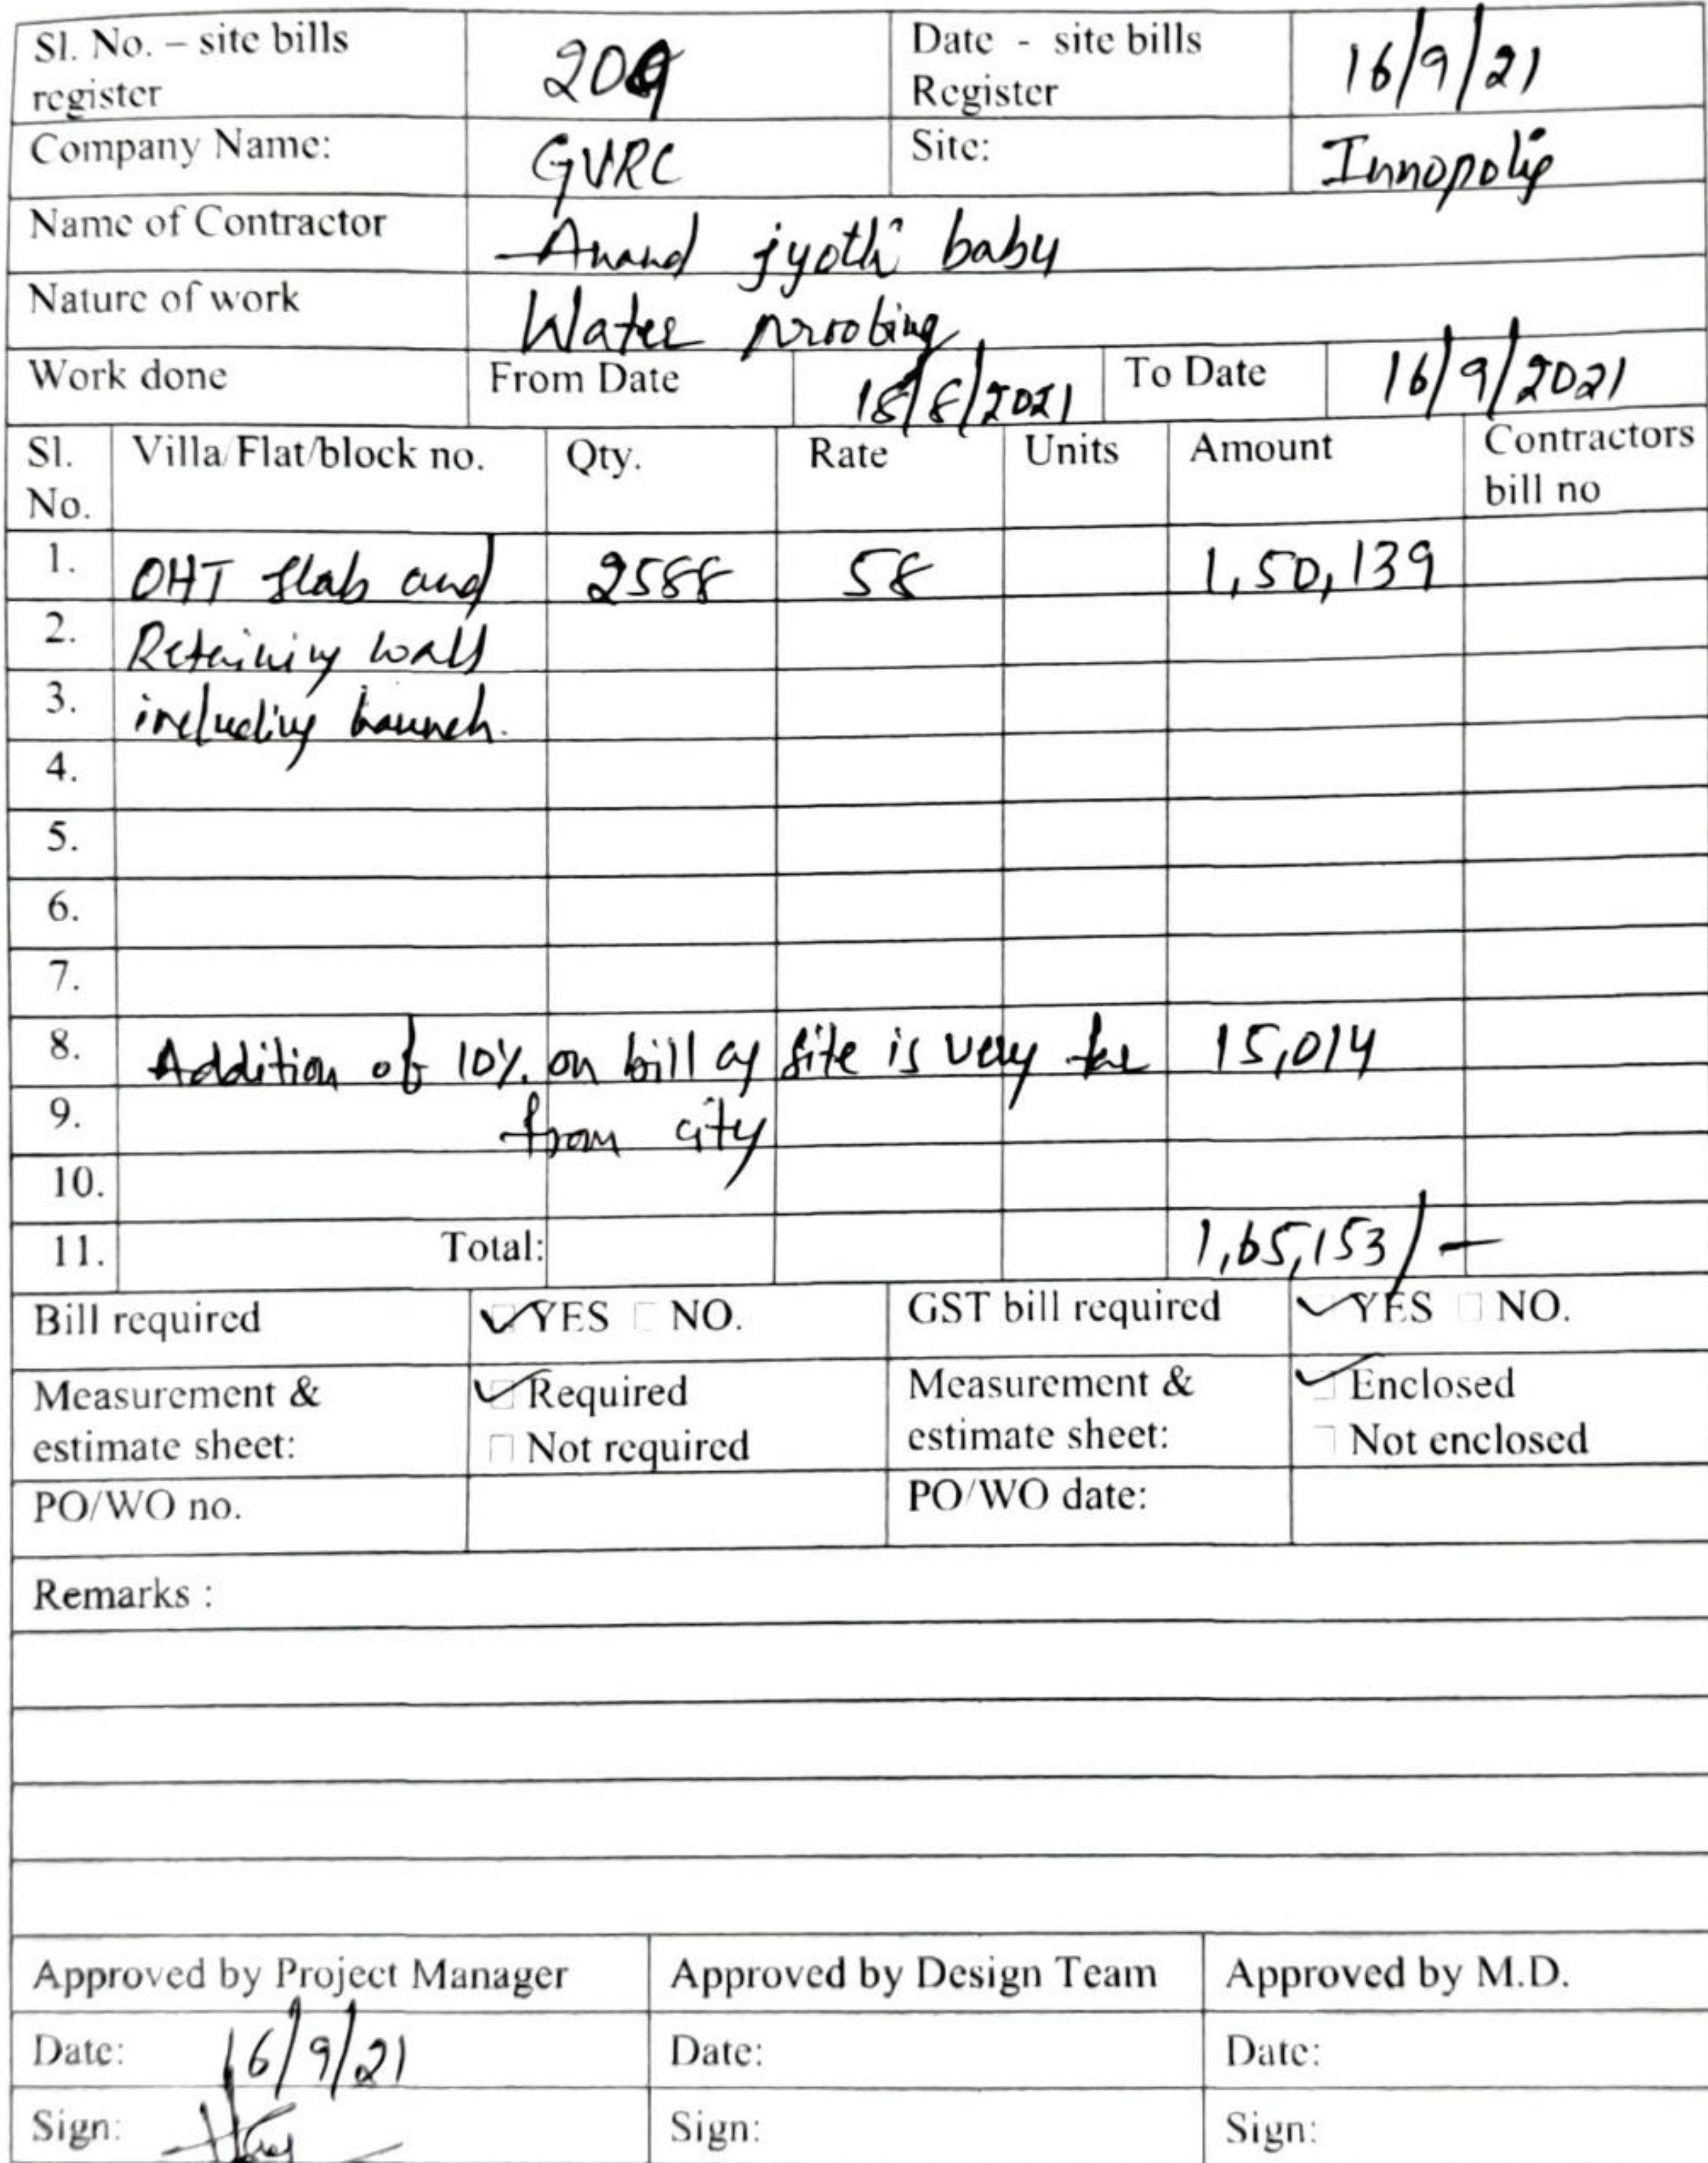 Sl. No. – site bills register 209 Date - site bills Register 16/9/21
Company Name: GVRC Site: Innopolis
Name of Contractor Anand jyothi baby
Nature of work Water proobing
Work done From Date 18/8/2021 To Date 16/9/2021
Sl. No. Villa/Flat/block no. Qty. Rate Units Amount Contractors bill no
1. OHT slab and 2588 58 1,50,139
2. Retaining wall
3. including haunch.
4.
5.
6.
7.
8. Addition of 10% on bill as site is very far 15,014
9. from city
10.
11. Total: 1,65,153/-
Bill required ✓YES □ NO. GST bill required ✓YES □ NO.
Measurement & estimate sheet: ✓Required □ Not required Measurement & estimate sheet: ✓Enclosed □ Not enclosed
PO/WO no. PO/WO date:
Remarks :
Approved by Project Manager Approved by Design Team Approved by M.D.
Date: 16/9/21 Date: Date:
Sign: Sign: Sign: